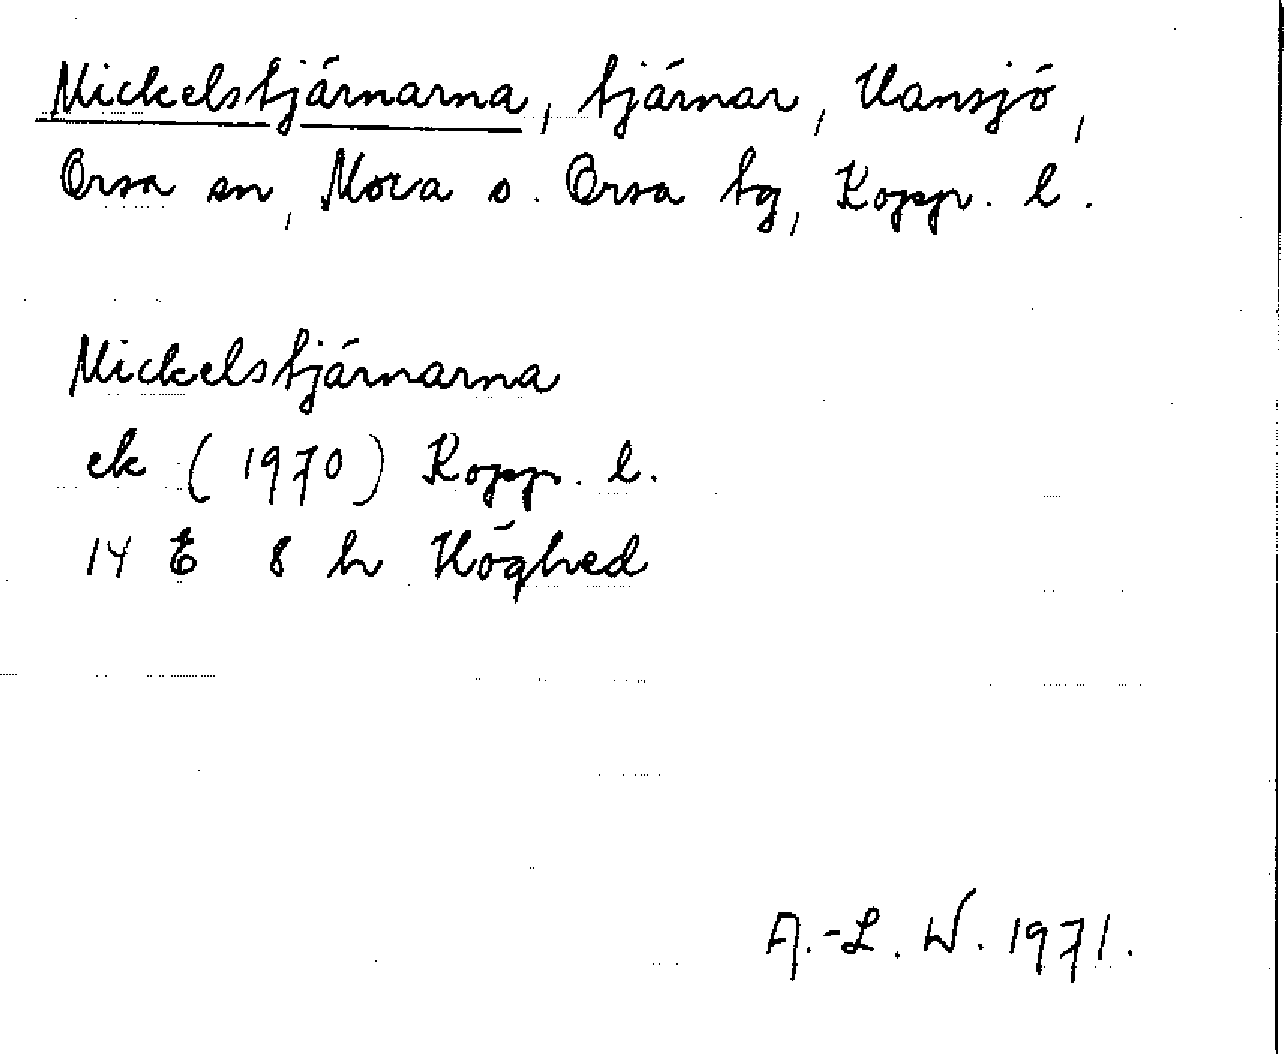 Mickelstjärnarna, tjärnar, Hansjö,
Orsa sn, Mora o. Orsa tg, Kopp. l.
Mickelstjärnarna
ek (1970) Kopp. l.
14 E 8 h Höghed
A.-L. W. 1971.